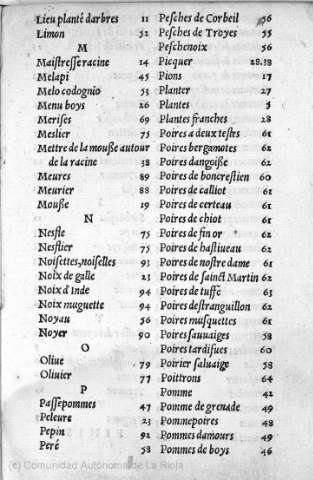 Lieu planté darbres 11
Limon 52
M
Maistresse racine 14
Melapi 45
Melo codognio 53
Menu boys 26
Merises 69
Meslier 75
Mettre de la mousse autour
de la racine 38
Meures 89
Meurier 88
Mousse 19
N
Nesfle 75
Nesflier 75
Noisettes, noiselles 93
Noix de galle 23
Noix d'Inde 94
Noix muguette 94
Noyau 56
Noyer 90
O
Oliue 79
Oliuier 77
P
Passepommes 47
Peleure 23
Pepin 92
Peré 58
Pesches de Corbeil 56
Pesches de Troyes 55
Peschenoix 56
Picquer 28.38
Pions 17
Planter 27
Plantes 5
Plantes franches 28
Poires a deux testes 61
Poires bergamotes 62
Poires dangoisse 62
Poires de boncrestien 60
Poires de calliot 61
Poires de certeau 61
Poires de chiot 61
Poires de fin or 62
Poires de hastiueau 62
Poires de nostre dame 61
Poires de sainct Martin 62
Poires de tuffe 63
Poires destranguillon 62
Poires musquettes 61
Poires sauuaiges 58
Poires tardifues 60
Poirier saluaige 58
Poittrons 64
Pomme 42
Pomme de grenade 49
Pommepoires 48
Pommes damours 49
Pommes de boys 46
(c) Comunidad Autónoma de La Rioja